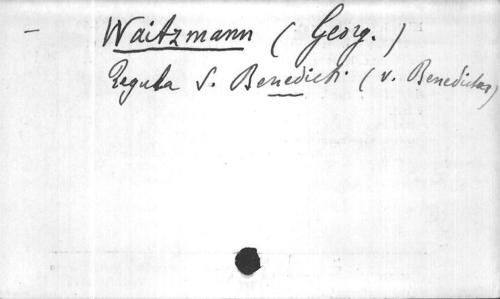 — Waitzmann (Georg.)
Regula S. Benedicti. (v. Benedictus)